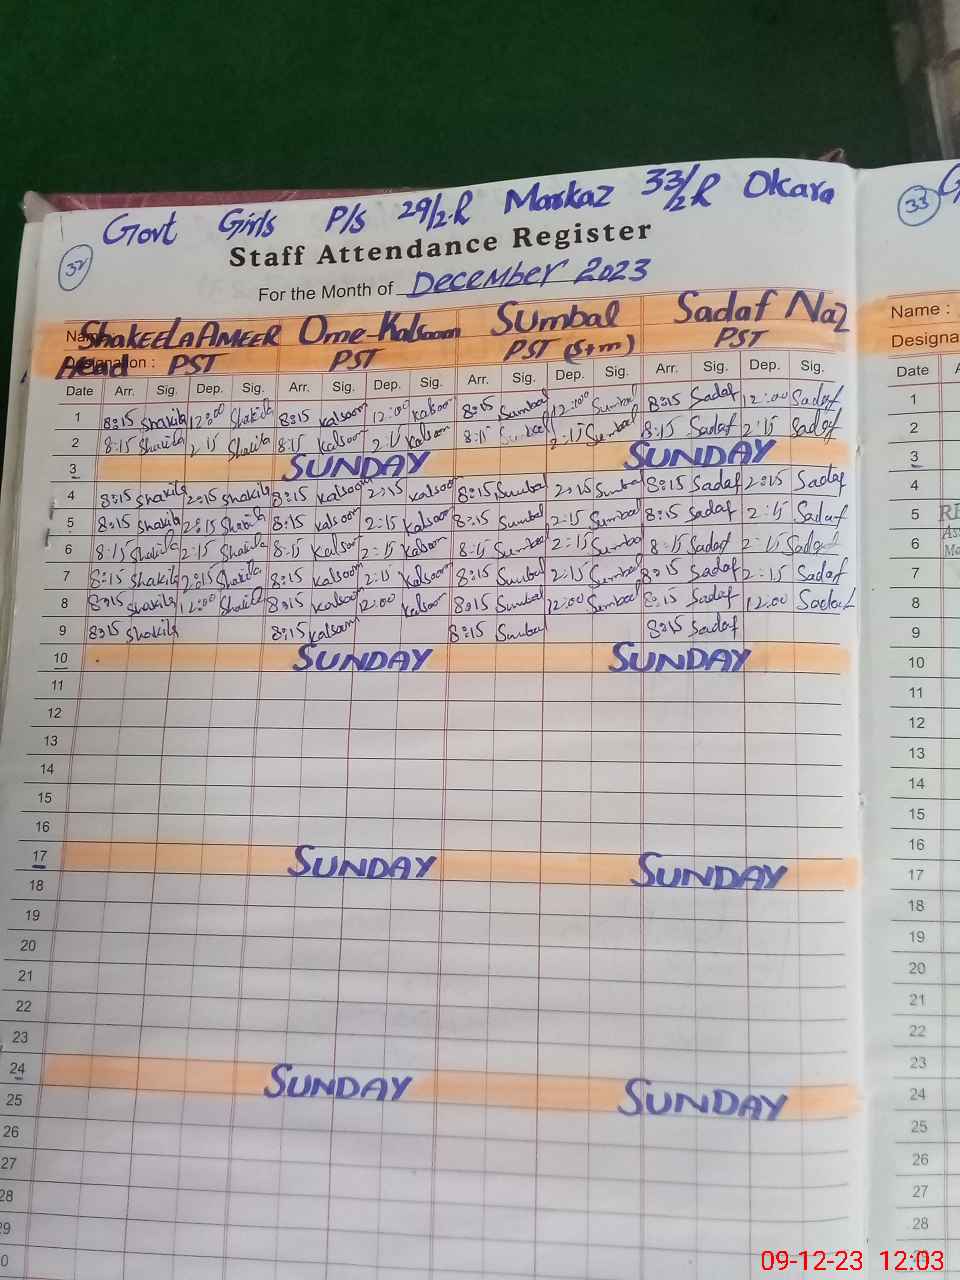 Govt Girls P/S 29/2.R Markaz 33/2R Okara
32 Staff Attendance Register
For the Month of December 2023
ShakeeLa AMEER Ome-Kalsoom Sumbal Sadaf Naz
Head PST PST PST (S+m) PST
Date Arr. Sig. Dep. Sig. Arr. Sig. Dep. Sig. Arr. Sig. Dep. Sig. Arr. Sig. Dep. Sig.
1 8:15 Shakila 12:00 Shakila 8:15 kalsoom 12:00 kalsoom 8:15 Sumbal 12:00 Sumbal 8:15 Sadaf 12:00 Sadaf
2 8:15 Shakila 2:15 Shakila 8:15 kalsoom 2:15 kalsoom 8:15 Sumbal 2:15 Sumbal 8:15 Sadaf 2:15 Sadaf
3 SUNDAY SUNDAY
4 8:15 Shakila 2:15 Shakila 8:15 kalsoom 2:15 kalsoom 8:15 Sumbal 2:15 Sumbal 8:15 Sadaf 2:15 Sadaf
5 8:15 Shakila 2:15 Shakila 8:15 kalsoom 2:15 kalsoom 8:15 Sumbal 2:15 Sumbal 8:15 Sadaf 2:15 Sadaf
6 8:15 Shakila 2:15 Shakila 8:15 kalsoom 2:15 kalsoom 8:15 Sumbal 2:15 Sumbal 8:15 Sadaf 2:15 Sadaf
7 8:15 Shakila 2:15 Shakila 8:15 kalsoom 2:15 kalsoom 8:15 Sumbal 2:15 Sumbal 8:15 Sadaf 2:15 Sadaf
8 8:15 Shakila 12:00 Shakila 8:15 kalsoom 12:00 kalsoom 8:15 Sumbal 12:00 Sumbal 8:15 Sadaf 12:00 Sadaf
9 8:15 Shakila 8:15 kalsoom 8:15 Sumbal 8:15 Sadaf
10 SUNDAY SUNDAY
11
12
13
14
15
16
17 SUNDAY SUNDAY
18
19
20
21
22
23
24 SUNDAY SUNDAY
25
26
27
28
33
Name :
Date
1
2
3
4
5
6
7
8
9
10
11
12
13
14
15
16
17
18
19
20
21
22
23
24
25
26
27
28
09-12-23 12:03